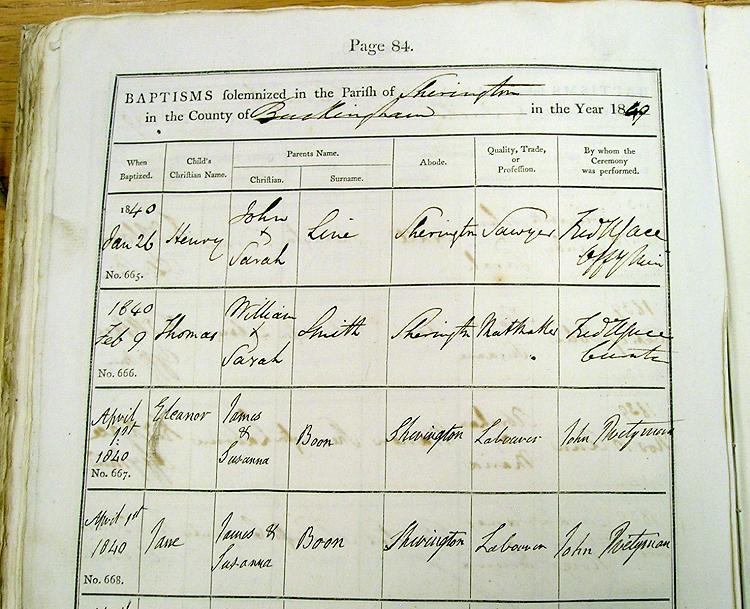 Page 84.
BAPTISMS solemnized in the Parish of Sherington
in the County of Buckingham in the Year 1840
When Baptized.
Child's Christian Name.
Parents Name.
Christian.
Surname.
Abode.
Quality, Trade, or Profession.
By whom the Ceremony was performed.
1840
Jan 26
No. 665.
Henry
John
+
Sarah
Line
Sherington
Sawyer
1840
Feb 9
No. 666.
Thomas
William
+
Sarah
Smith
Sherington
Curate
April
1st
1840
No. 667.
Eleanor
James
&
Susanna
Boon
Sherington
Labourer
John
April 1st
1840
No. 668.
Jane
James &
Susanna
Boon
Sherington
Labourer
John